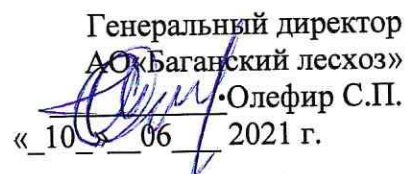 Генеральный директор
АО«Баганский лесхоз»
Олефир С.П.
«_10_»__06___ 2021 г.